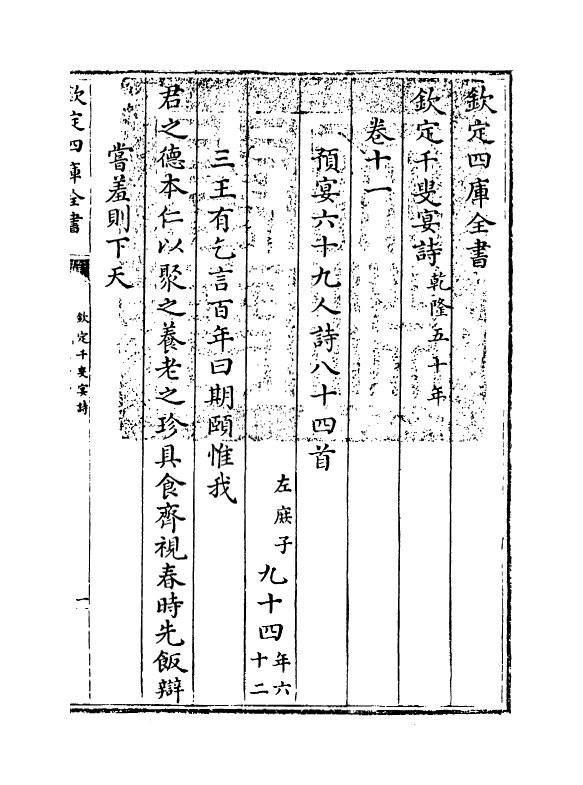 欽定四庫全書
欽定千叟宴詩乾隆五十年
卷十一
預宴六十九人詩八十四首
左庶子九十四年六十二
三王有乞言百年曰期頤惟我
君之德本仁以聚之養老之珍具食齊視春時先飯辯
嘗羞則下天
欽定四庫全書
欽定千叟宴詩
一